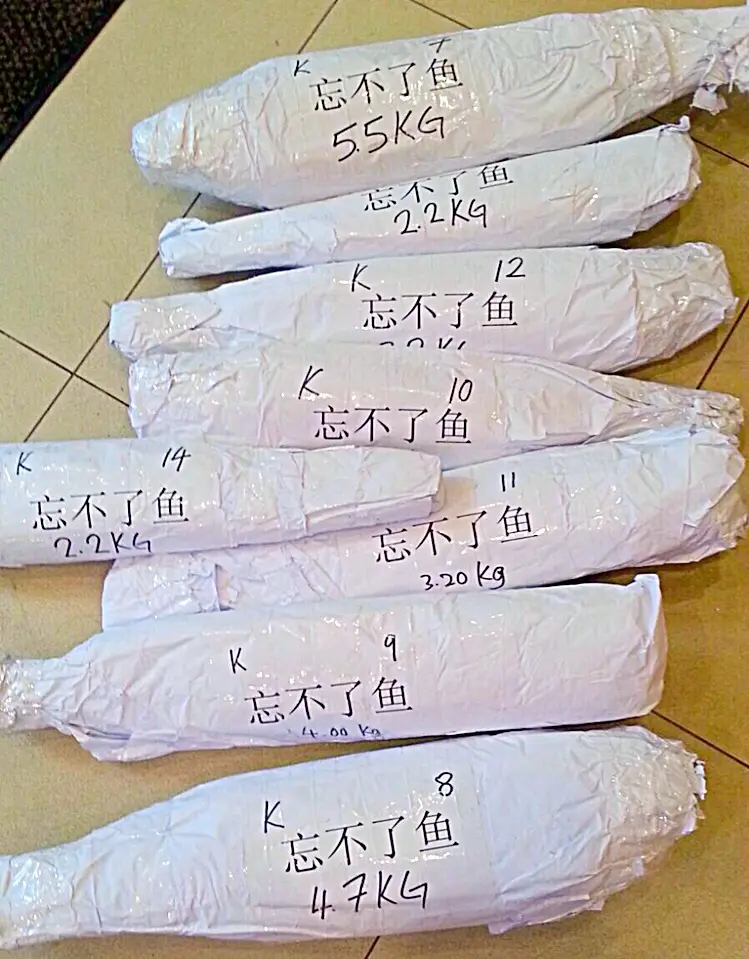 K
忘不了鱼
5.5KG
忘不了鱼
2.2KG
K 12
忘不了鱼
K 10
忘不了鱼
K 14
忘不了鱼
2.2KG
11
忘不了鱼
3.20 Kg
K 9
忘不了鱼
4.00 Kg
K 8
忘不了鱼
4.7KG